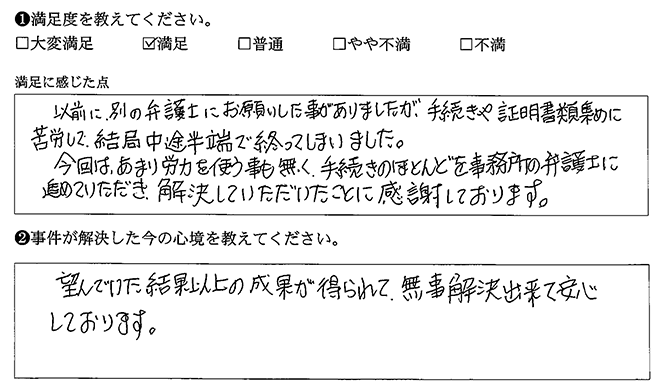 ❶満足度を教えてください。
□大変満足 ☑満足 □普通 □やや不満 □不満
満足に感じた点
以前に、別の弁護士にお願いした事がありましたが、手続きや証明書類集めに
苦労して、結局中途半端で終ってしまいました。
今回は、あまり労力を使う事も無く、手続きのほとんどを事務所の弁護士に
進めていただき、解決していただいたことに感謝しております。
❷事件が解決した今の心境を教えてください。
望んでいた結果以上の成果が得られて、無事解決出来て安心
しております。